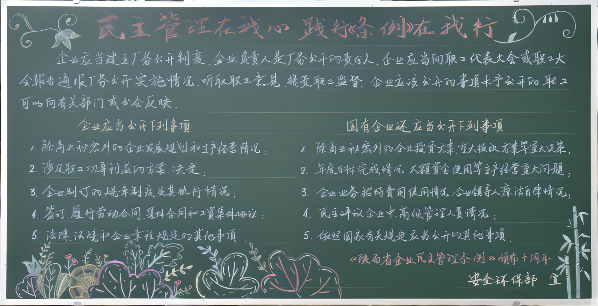 民主管理在我心 践行《条例》在我行
企业应当建立厂务公开制度,企业负责人是厂务公开的责任人,企业应当向职工代表大会或职工大
会报告通报厂务公开实施情况,听取职工意见,接受职工监督,企业应该公开的事项未予公开的,职工
可以向有关部门或公会反映。
企业应当公开下列事项
1. 除商业秘密外的企业发展规划和生产经营情况;
2. 涉及职工切身利益的方案、决定;
3. 企业制订的规章制度及其执行情况;
4. 签订、履行劳动合同、集体合同和工资集体协议;
5. 法律、法规和企业章程规定的其他事项
国有企业还应当公开下列事项
1. 除商业秘密外的企业投资方案,重大
2. 年度目标完成情况,大额资金使用等生产经营重大问题;
3. 企业业务招待费用使用情况,企业领导人廉洁自律情况;
4. 民主评议企业中高级管理人员情况;
5. 依照国家有关规定应当公开的其他事项
《陕西省企业民主管理条例》颁布十周年
安全环保部 宣